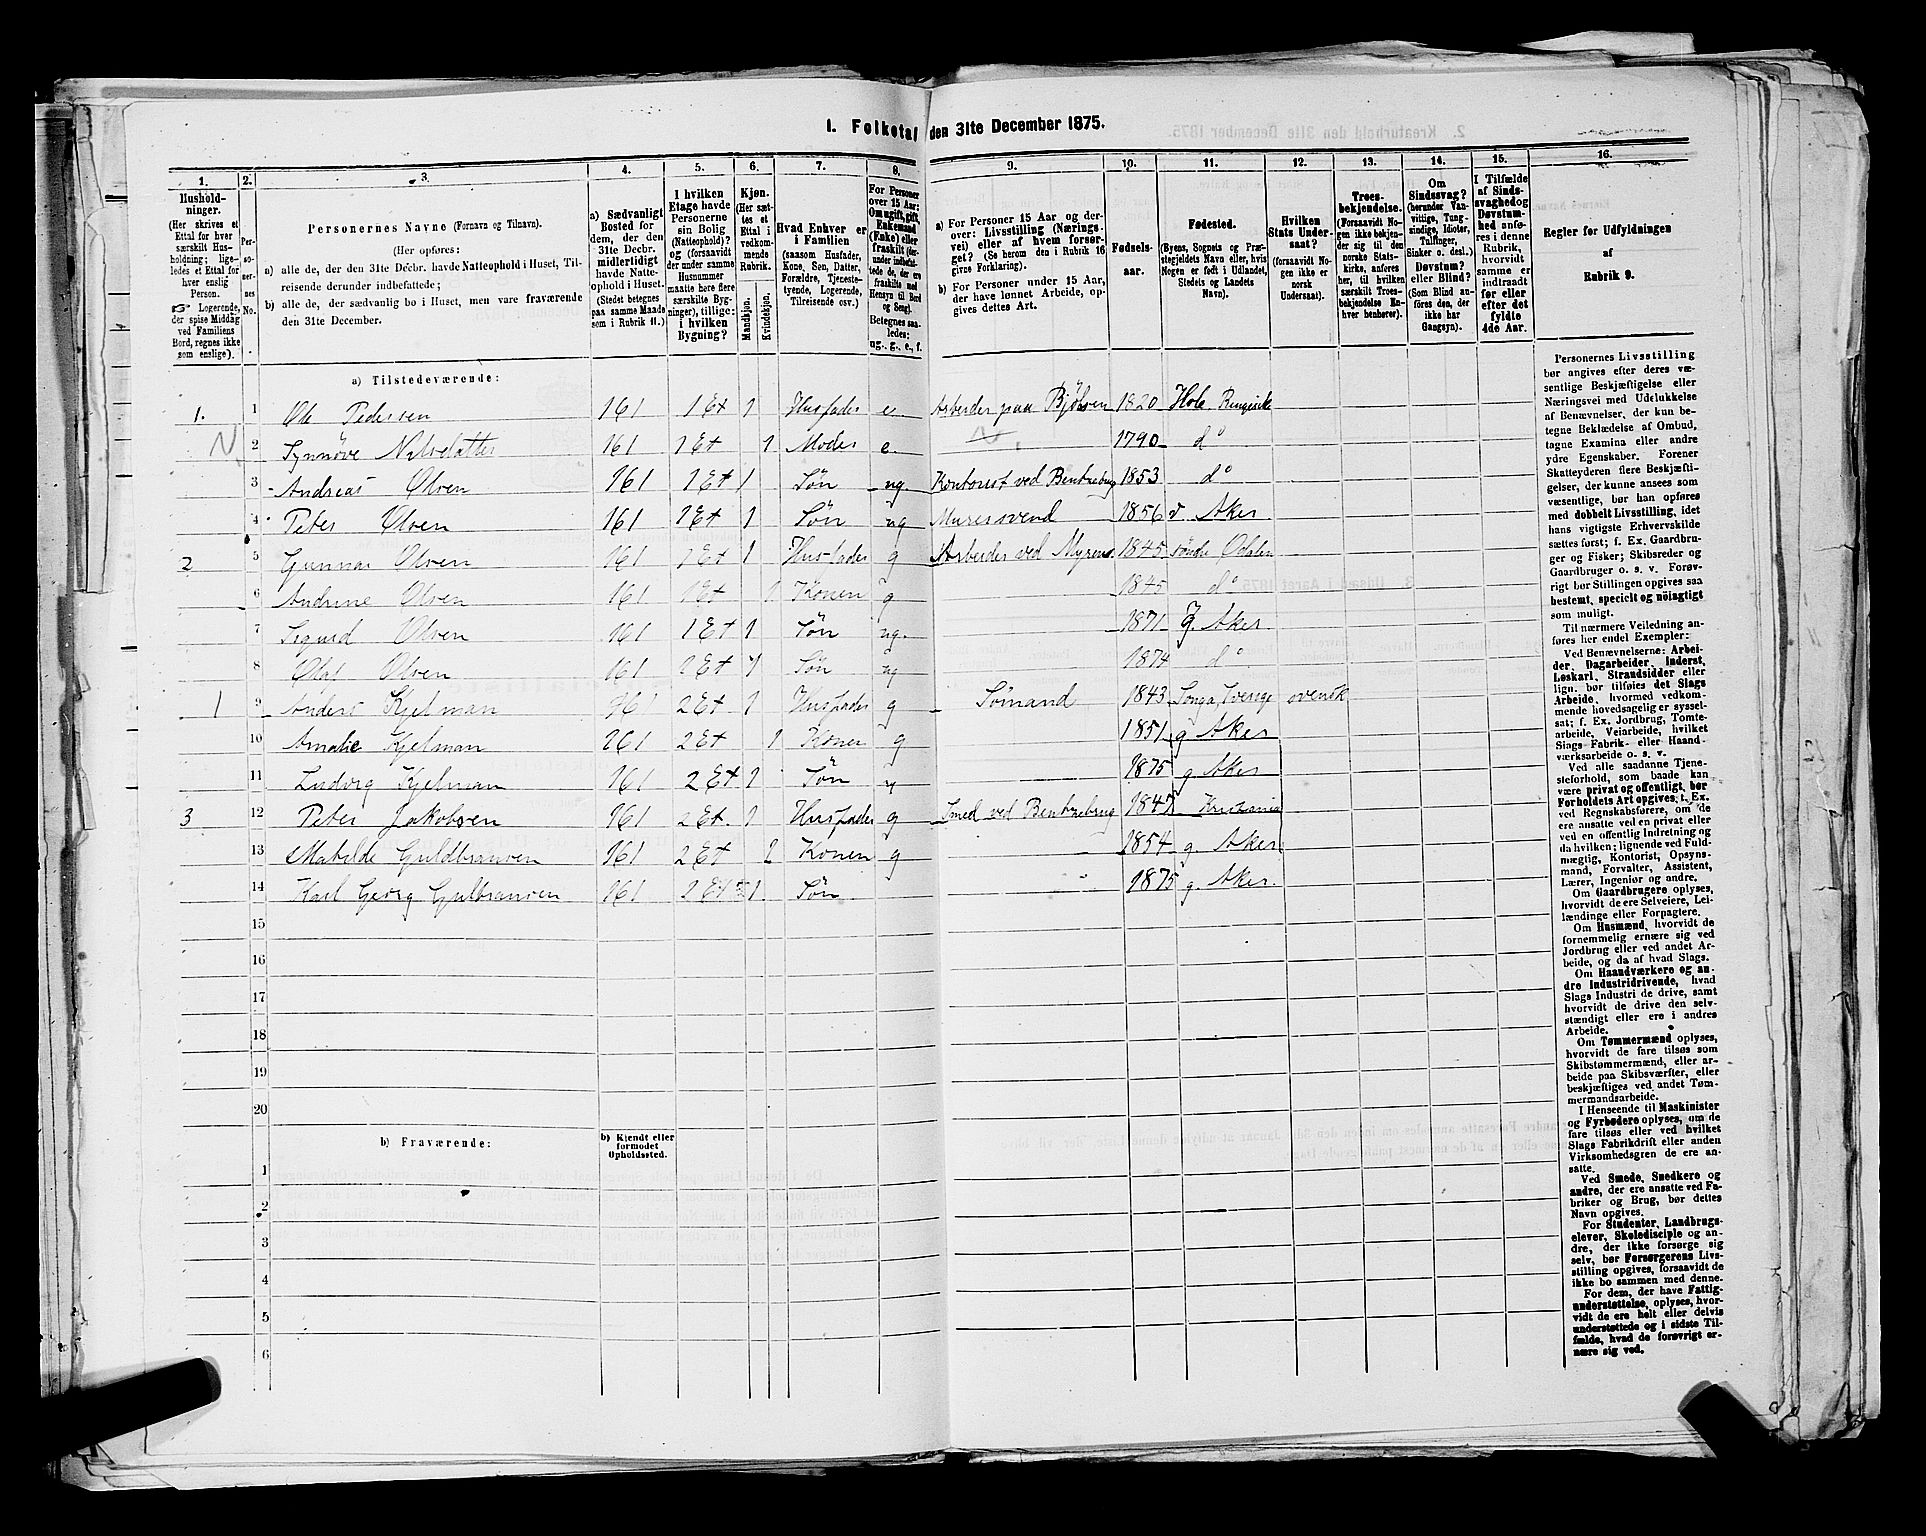 1. Folketal den 31te December 1875.
1. 2. 3. 4. 5. 6. 7. 8. 9. 10. 11. 12. 13. 14. 15. 16.
Husholdninger.
(Her skrives et
Ettal for hver
særskilt Husholdning;
ligeledes et Ettal for
hver enslig
Person.
Logerende,
der spise Middag
ved Familiens
Bord, regnes ikke
som enslige).
Personernes No.
Personernes Navne (Fornavn og Tilnavn).
(Her opføres:
a) alle de, der den 31te Decbr. havde Natteophold i Huset, Tilreisende
derunder indbefattede;
b) alle de, der sædvanlig bo i Huset, men vare fraværende
den 31te December.
a) Sædvanligt
Bosted for
dem, der den
31te Decbr.
midlertidigt
havde Natteophold
i Huset.
(Stedet betegnes
paa samme Maade
som i Rubrik 11.)
I hvilken
Etage havde
Personerne
sin Bolig
(Natteophold)?
og (forsaavidt
der under samme
Husnummer
maatte høre flere
særskilte Bygninger),
tillige:
i hvilken
Bygning?
Kjøn.
(Her sættes
et
Ettal i
vedkommende
Rubrik.
Mandkjøn.
Kvindekjøn.
Hvad Enhver er
i Familien
(saasom Husfader,
Kone, Søn, Datter,
Forældre, Tjenestetyende,
Logerende,
Tilreisende osv.)
For Personer
over 15 Aar:
Om ugift, gift,
Enkemand
(Enke) eller
fraskilt
Betegnes saaledes:
ug., g., e., f.
a) For Personer 15 Aar og derover:
Livsstilling (Næringsvei)
eller af hvem forsørget?
(Se herom den i Rubrik 16
givne Forklaring).
b) For Personer under 15 Aar,
der have lønnet Arbeide, opgives
dettes Art.
Fødselsaar.
Fødested.
(Byens, Sognets og Præstegjeldets
Navn eller, hvis
Nogen er født i Udlandet,
Stedets og Landets
Navn).
Hvilken
Stats Undersaat?
(forsaavidt Nogen
ikke er
norsk
Undersaat).
Troesbekjendelse.
(Forsaavidt Nogen
ikke bekjender
sig til den
norske Statskirke,
anføres
her, til hvilken
særskilt Troesbekjendelse
Enhver
benhører).
Om
Sindssvag?
(herunder Vanvittige,
Tungsindige,
Idioter,
Tullinger,
Sinker o. desl.)
Døvstum?
eller Blind?
(Som Blind anføres
den, der
ikke har
Gangsyn).
I Tilfælde
af Sindssvaghed
og
Døvstumhed
anføres
i denne
Rubrik,
hvorvidt
samme er
indtraadt
før eller
efter det
fyldte
4de Aar.
Regler for Udfyldningen
af
Rubrik 9.
a) Tilstedeværende:
1. 1 Ole Pedersen 161 1 Et 1 Husfader e. Arbeider paa Bjølsen 1820 Hole Ringerike
2 Synnøve 161 1 Et 1 Moder e. 1790 do
3 Andreas Olsen 161 1 Et 1 Søn ug Kontorist ved Bentsebrug 1853 do
4 Peter Olsen 161 1 Et 1 Søn ug Mursvend 1856 v. Aker
2 5 Gunnar Olsen 161 1 Et 1 Husfader g Arbeider ved Myrens 1845 søndre Odalen
6 Andrine Olsen 161 1 Et 1 Konen g 1845 do
7 Sigurd Olsen 161 1 Et 1 Søn ug. 1871 g. Aker
8 Olaf Olsen 161 1 Et 1 Søn ug 1874 do
1 9 Anders Kjelman 161 2 Et 1 Husfader g Sømand 1843 Sverige svensk
10 Amalie Kjelman 161 2 Et 1 Konen g 1851 g Aker
11 Ludvig Kjelman 161 2 Et 1 Søn 1875 g Aker
3 12 Peter Jakobsen 161 2 Et. 1 Husfader g Smed ved Bentsebrug 1847 Kristiania
13 Matilde Guldbransen 161 2 Et 1 Konen g 1854 g. Aker
14 Karl Georg Gulbransen 161 2 Et 1. Søn 1875 g. Aker.
15
16
17
18
19
20
b) Fraværende: b) Kjendt eller
formodet
Opholdssted.
1
2
3
4
5
6
Personernes Livsstilling
bør angives efter deres væsentlige
Beskjæftigelse eller
Næringsvei med Udelukkelse
af Benævnelser, der kun betegne
Beklædelse af Ombud,
tagne Examina eller andre
ydre Egenskaber. Forener
Skatteyderen flere Beskjæftigelser,
der kunne ansees som
væsentlige, bør han opføres
med dobbelt Livsstilling, idet
hans vigtigste Erhvervskilde
sættes først; f. Ex. Gaardbruger
og Fisker; Skibsreder og
Gaardbruger o. s. v. Forøvrigt
bør Stillingen opgives saa
bestemt, specielt og nøiagtigt
som muligt.
Til nærmere Veiledning anføres
her endel Exempler:
Ved Benævnelserne: Arbeider,
Dagarbeider, Inderst,
Løskarl, Strandsidder eller
lign. bør tilføies det Slags
Arbeide, hvormed vedkommende
hovedsagelig er sysselsat;
f. Ex. Jordbrug, Tomtearbeide,
Veiarbeide, hvilket
Slags Fabrik- eller Haandværksarbeide
o. s. v.
Ved alle saadanne Tjenesteforhold,
som baade kan
være privat og offentligt, bør
Forholdets Art opgives; t. Ex.
ved Regnskabsførere, om de
ere ansatte ved en privat eller
ved en offentlig Indretning og
da hvilken; lignende ved Fuldmægtig,
Kontorist, Opsynsmand,
Forvalter, Assistent,
Lærer, Ingeniør og andre.
Om Gaardbrugere oplyses,
hvorvidt de ere Selveiere, Leilændinge
eller Forpagtere.
Om Husmænd, hvorvidt de
fornemmelig ernære sig ved
Jordbrug eller ved andet Arbeide,
og da af hvad Slags.
Om Haandværkere og andre
Industridrivende, hvad
Slags Industri de drive, samt
hvorvidt de drive den selvstændigt
eller ere i andres
Arbeide.
Om Tømmermænd oplyses,
hvorvidt de fare tilsøs som
Skibstømmermænd, eller arbeide
paa Skibsværfter, eller
beskjæftiges ved andet Tømmermandsarbeide.
I Henseende til Maskinister
og Fyrbødere oplyses, om de
fare tilsøs eller ved hvilket
Slags Fabrikdrift eller anden
Virksomhedsgren de ere ansatte.
Ved Smede, Snedkere og
andre, der ere ansatte ved Fabriker
og Brug, bør dettes
Navn opgives.
For Studenter, Landbrugselever,
Skoledisciple og andre,
der ikke forsørge sig
selv, bør Forsørgerens Livsstilling
opgives, forsaavidt de
ikke bo sammen med denne.
For dem, der have Fattigunderstøttelse,
oplyses, hvorvidt
de ere helt eller delvis
understøttede og i sidste Tilfælde,
hvad de forøvrigt ernære
sig ved.